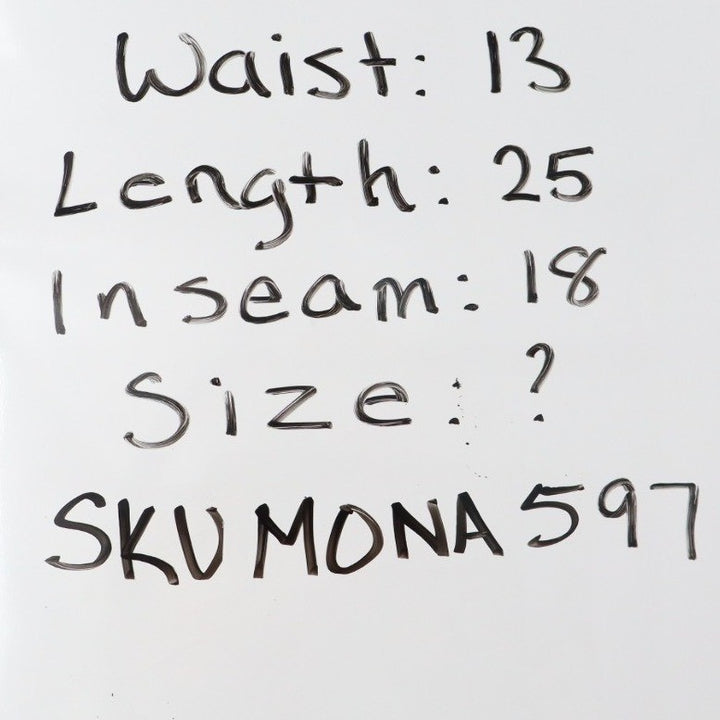 Waist: 13
Length: 25
Inseam: 18
Size: ?
SKU MONA 597